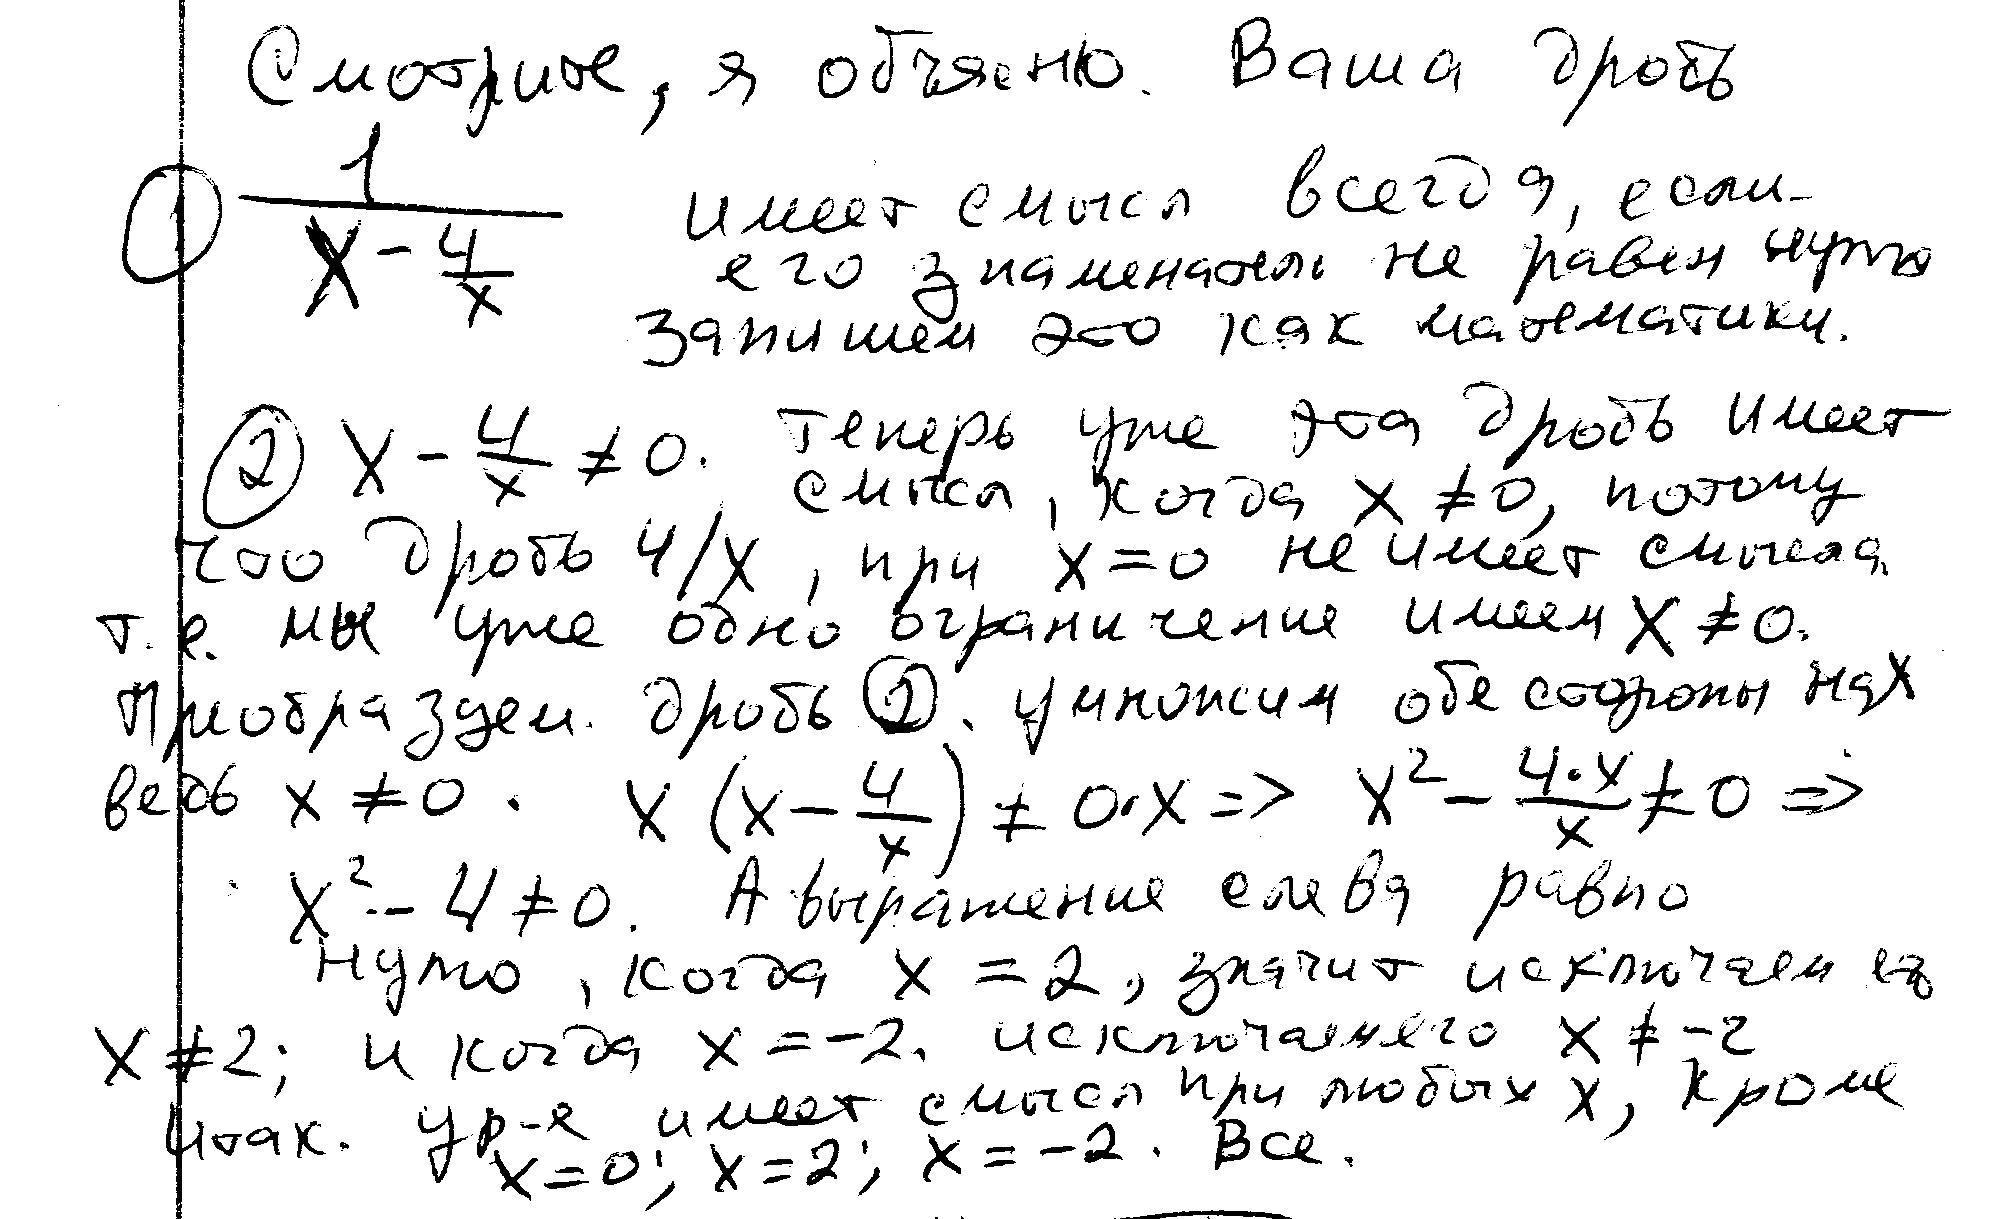 Смотрите, я объясню. Ваша дробь
① 1/(x - 4/x) имеет смысл всегда, если
его знаменатель не равен нулю
Запишем это как математики.
② x - 4/x ≠ 0. Теперь уже эта дробь имеет
смысл, когда x ≠ 0, потому
что дробь 4/x, при x = 0 не имеет смысла
т.е. мы уже одно ограничение имеем x ≠ 0.
Преобразуем. дробь ②. умножим обе стороны на x
ведь x ≠ 0. x (x - 4/x) ≠ 0·x => x² - 4·x/x ≠ 0 =>
x² - 4 ≠ 0. А выражение слева равно
нулю, когда x = 2, значит исключаем ее
x ≠ 2; и когда x = -2. исключаем его x ≠ -2
итак. ур-е имеет смысл при любых x, кроме
x = 0; x = 2; x = -2. Все.